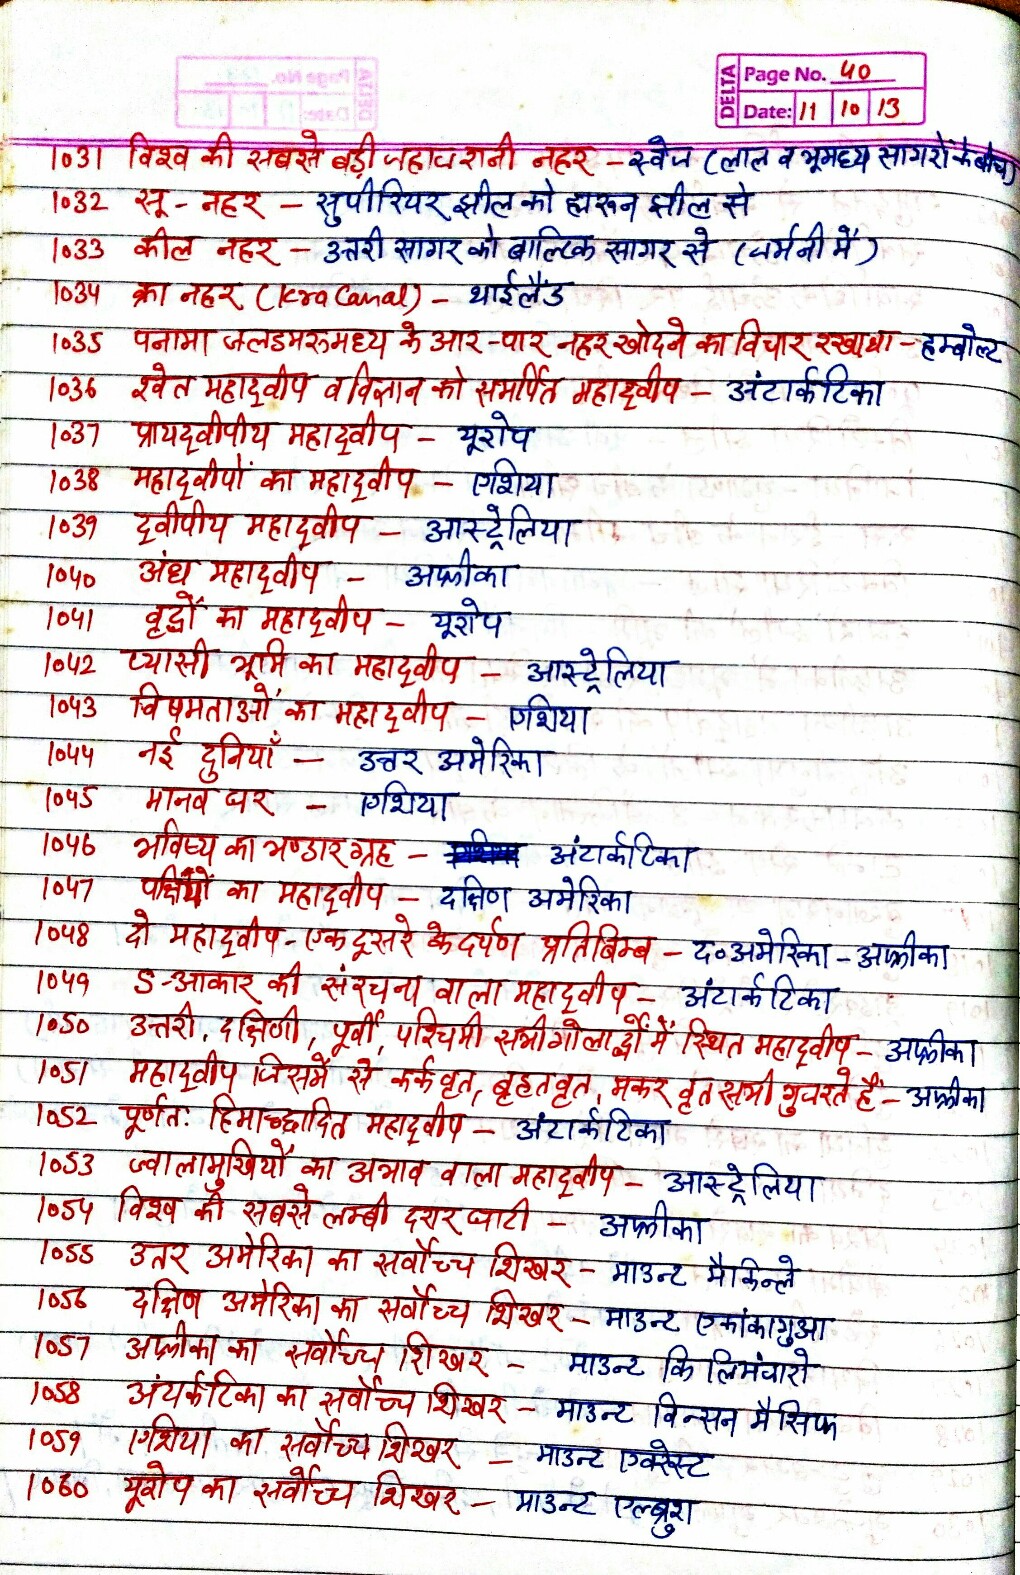 DELTA
Page No. 40
Date: 11 10 13
1031 विश्व की सबसे बड़ी जहाजरानी नहर - स्वेज (लाल व भूमध्य सागरों के बीच)
1032 सू - नहर - सुपीरियर झील को ह्यूरून झील से
1033 कील नहर - उत्तरी सागर को बाल्टिक सागर से (जर्मनी में)
1034 क्रा नहर (Kra Canal) - थाईलैंड
1035 पनामा जलडमरूमध्य के आर-पार नहर खोदने का विचार रखा था - हम्बोल्ट
1036 श्वेत महाद्वीप व विज्ञान को समर्पित महाद्वीप - अंटार्कटिका
1037 प्रायद्वीपीय महाद्वीप - यूरोप
1038 महाद्वीपों का महाद्वीप - एशिया
1039 द्वीपीय महाद्वीप - आस्ट्रेलिया
1040 अंध महाद्वीप - अफ्रीका
1041 वृद्धों का महाद्वीप - यूरोप
1042 प्यासी भूमि का महाद्वीप - आस्ट्रेलिया
1043 विषमताओं का महाद्वीप - एशिया
1044 नई दुनियाँ - उत्तर अमेरिका
1045 मानव घर - एशिया
1046 भविष्य का भण्डार ग्रह - अंटार्कटिका
1047 पक्षियों का महाद्वीप - दक्षिण अमेरिका
1048 दो महाद्वीप - एक दूसरे के दर्पण प्रतिबिम्ब - द० अमेरिका - अफ्रीका
1049 S-आकार की संरचना वाला महाद्वीप - अंटार्कटिका
1050 उत्तरी, दक्षिणी, पूर्वी, पश्चिमी सभी गोलार्द्धों में स्थित महाद्वीप - अफ्रीका
1051 महाद्वीप जिसमें से कर्क वृत, बृहत वृत, मकर वृत सभी गुजरते हैं - अफ्रीका
1052 पूर्णतः हिमाच्छादित महाद्वीप - अंटार्कटिका
1053 ज्वालामुखियों का अभाव वाला महाद्वीप - आस्ट्रेलिया
1054 विश्व की सबसे लम्बी दरार घाटी - अफ्रीका
1055 उत्तर अमेरिका का सर्वोच्च शिखर - माउन्ट मैकिन्ले
1056 दक्षिण अमेरिका का सर्वोच्च शिखर - माउन्ट एकांकागुआ
1057 अफ्रीका का सर्वोच्च शिखर - माउन्ट किलिमंजारो
1058 अंटार्कटिका का सर्वोच्च शिखर - माउन्ट विन्सन मैसिफ
1059 एशिया का सर्वोच्च शिखर - माउन्ट एवरेस्ट
1060 यूरोप का सर्वोच्च शिखर - माउन्ट एल्ब्रुश